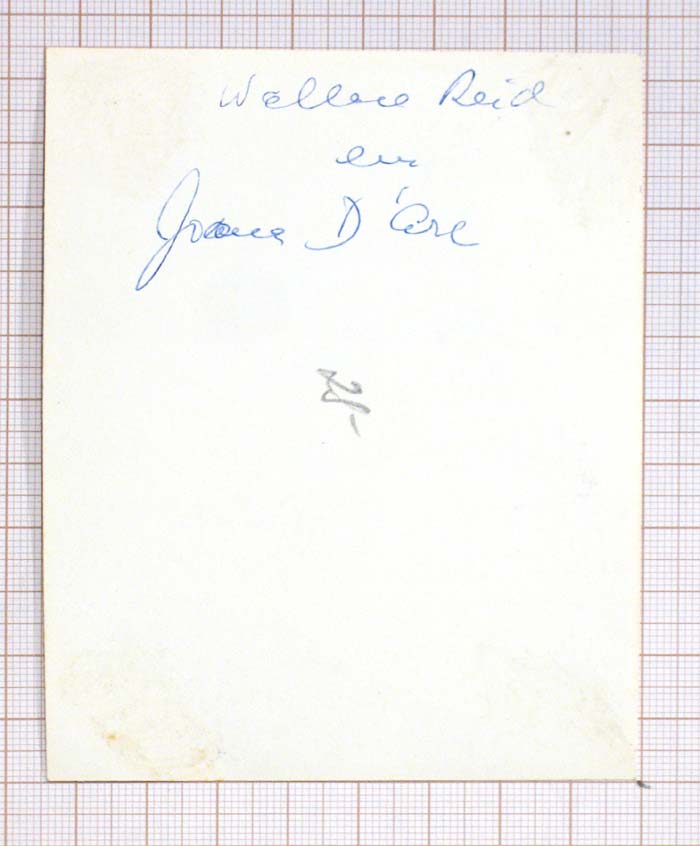 Wallace Reid
en
Joana D'Arc